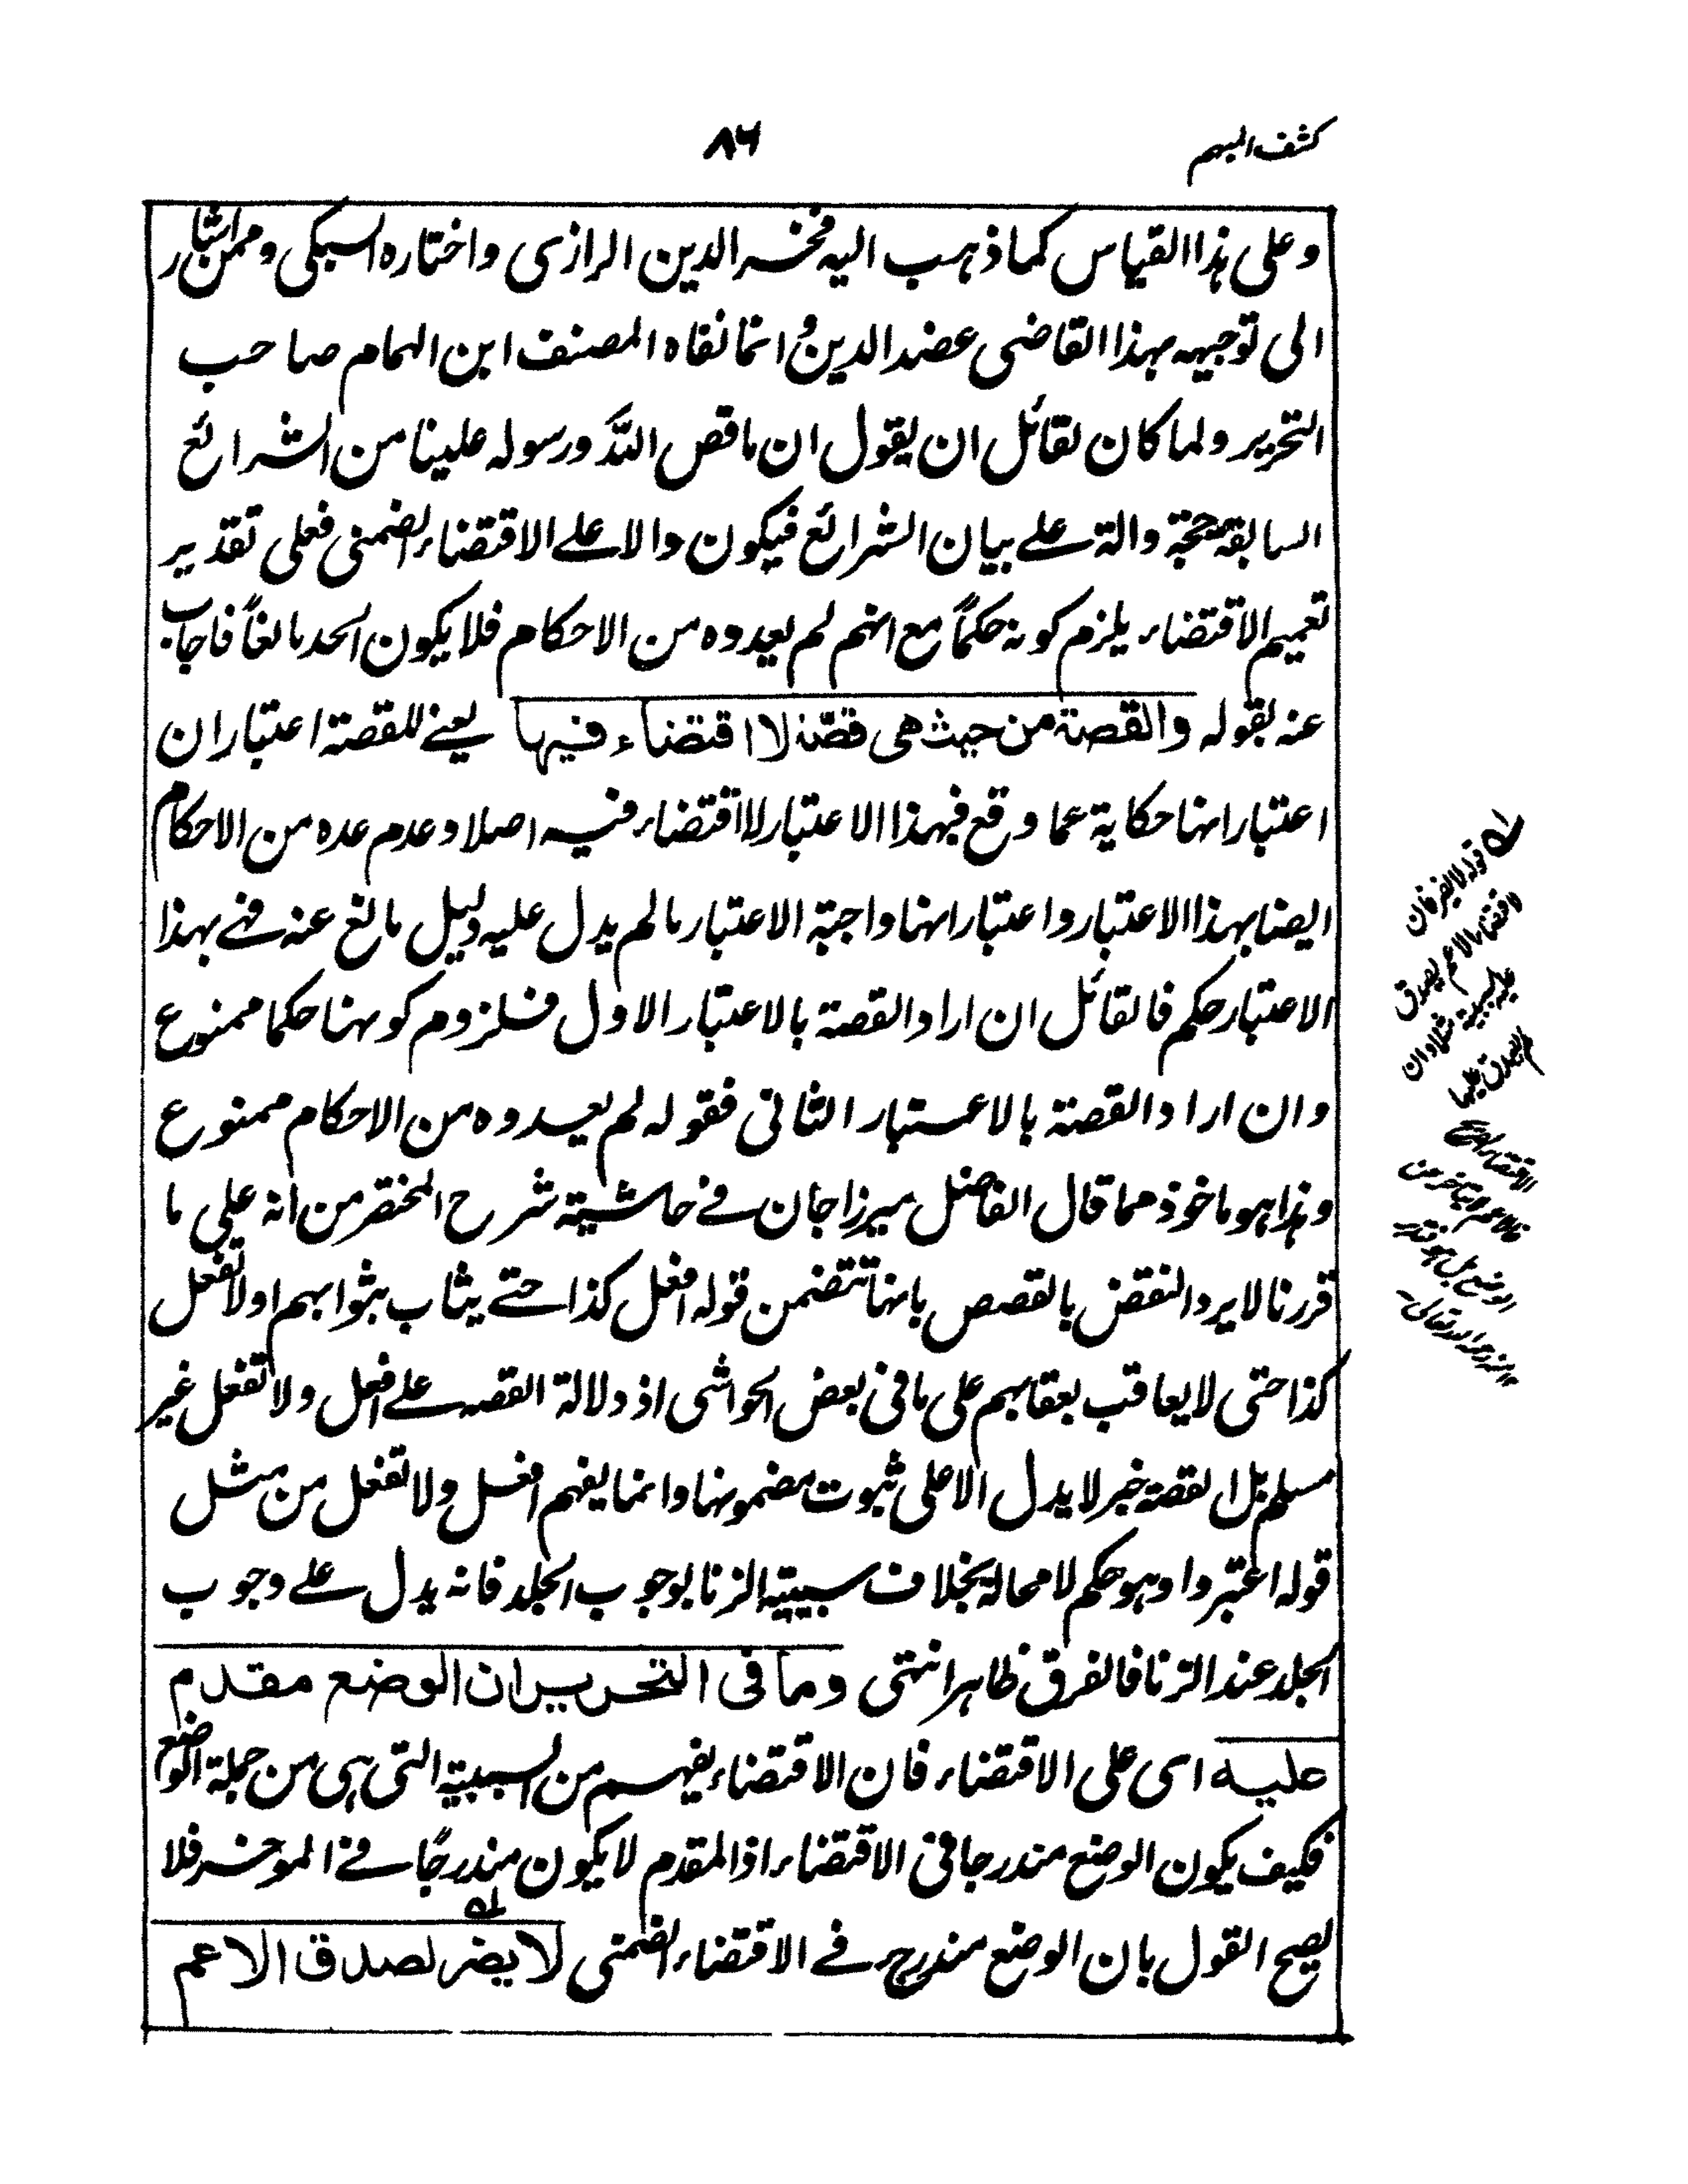 كشف المبهم
٨٦
وعلى هذا القياس كما ذهب اليه فخر الدين الرازى واختاره السبكى وممن اشار
الى توجيهه بهذا القاضى عضد الدين وانما نفاه المصنف ابن الهمام صاحب
التحرير ولما كان لقائل ان يقول ان ما قص الله ورسوله علينا من الشرائع
السابقة حجة دالة على بيان الشرائع فيكون دالا على الاقتضاء الضمنى فعلى تقدير
تعميم الاقتضاء يلزم كونه حكماً مع انهم لم يعدوه من الاحكام فلا يكون الحد مانعاً فاجاب
عنه بقوله والقصة من حيث هى قصّة لا اقتضاء فيها يعنى للقصة اعتباران
اعتبار انها حكاية عما وقع فبهذا الاعتبار لا اقتضاء فيه اصلا وعدم عده من الاحكام
ايضا بهذا الاعتبار واعتبار انها واجبة الاعتبار ما لم يدل عليه دليل مانع عنه فهى بهذا
الاعتبار حكم فالقائل ان اراد القصة بالاعتبار الاول فلزوم كونها حكما ممنوع
وان اراد القصة بالاعتبار الثانى فقوله لم يعدوه من الاحكام ممنوع
وهذا هو ماخوذ مما قال الفاضل ميرزا جان فى حاشية شرح المختصر من انه على ما
قررنا لا يرد النقض بالقصص بانها تتضمن قوله افعل كذا حتى يثاب بثوابهم او لا تفعل
كذا حتى لا يعاقب بعقابهم على ما فى بعض الحواشى اذ دلالة القصه على افعل ولا تفعل غير
مسلم بل القصة خبر لا يدل الا على ثبوت مضمونها وانما يفهم افعل ولا تفعل من مثل
قوله اعتبروا وهو حكم لا محالة بخلاف سببية الزنا لوجوب الجلد فانه يدل على وجوب
الجلد عند الزنا فالفرق ظاهر انتهى وما فى التحرير ان الوضع مقدم
عليه اى على الاقتضاء فان الاقتضاء يفهم من السببية التى هى من جملة الوضع
فكيف يكون الوضع مندرجا فى الاقتضاء اذ المقدم لا يكون مندرجًا فى الموخر فلا
يصح القول بان الوضع مندرج فى الاقتضاء الضمنى لا يضر لصدق الاعم
قوله لا يضر فان
اقتضاء الاعم يصدق